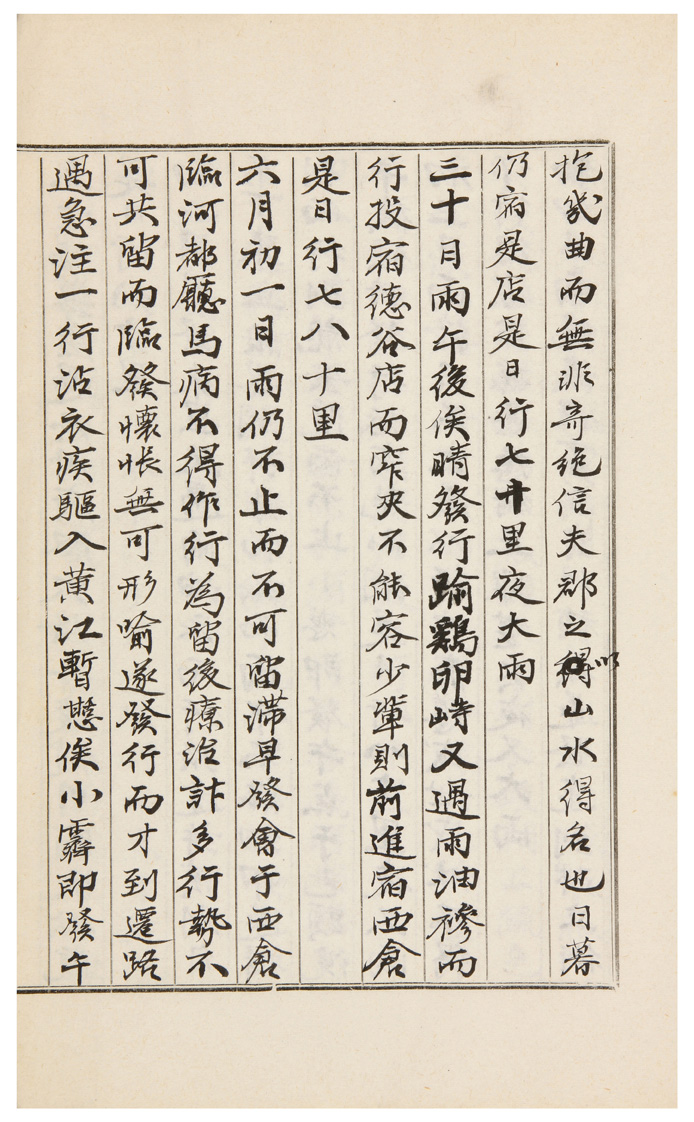 抱幾曲而無非奇絶信夫郡之以山水得名也日暮
仍宿是店是日行七十里夜大雨
三十日雨午後俟晴發行踰鷄卵峙又遇雨油襂而
行投宿德谷店而窄夾不能容少輩則前進宿西倉
是日行七八十里
六月初一日雨仍不止而不可留滯早發會于西倉
臨河都廳馬病不得作行為留後療治計多行勢不
可共留而臨發懷悵無可形喻遂發行而才到遷路
遇急注一行沾衣疾驅入黄江暫憇俟小霽即發午